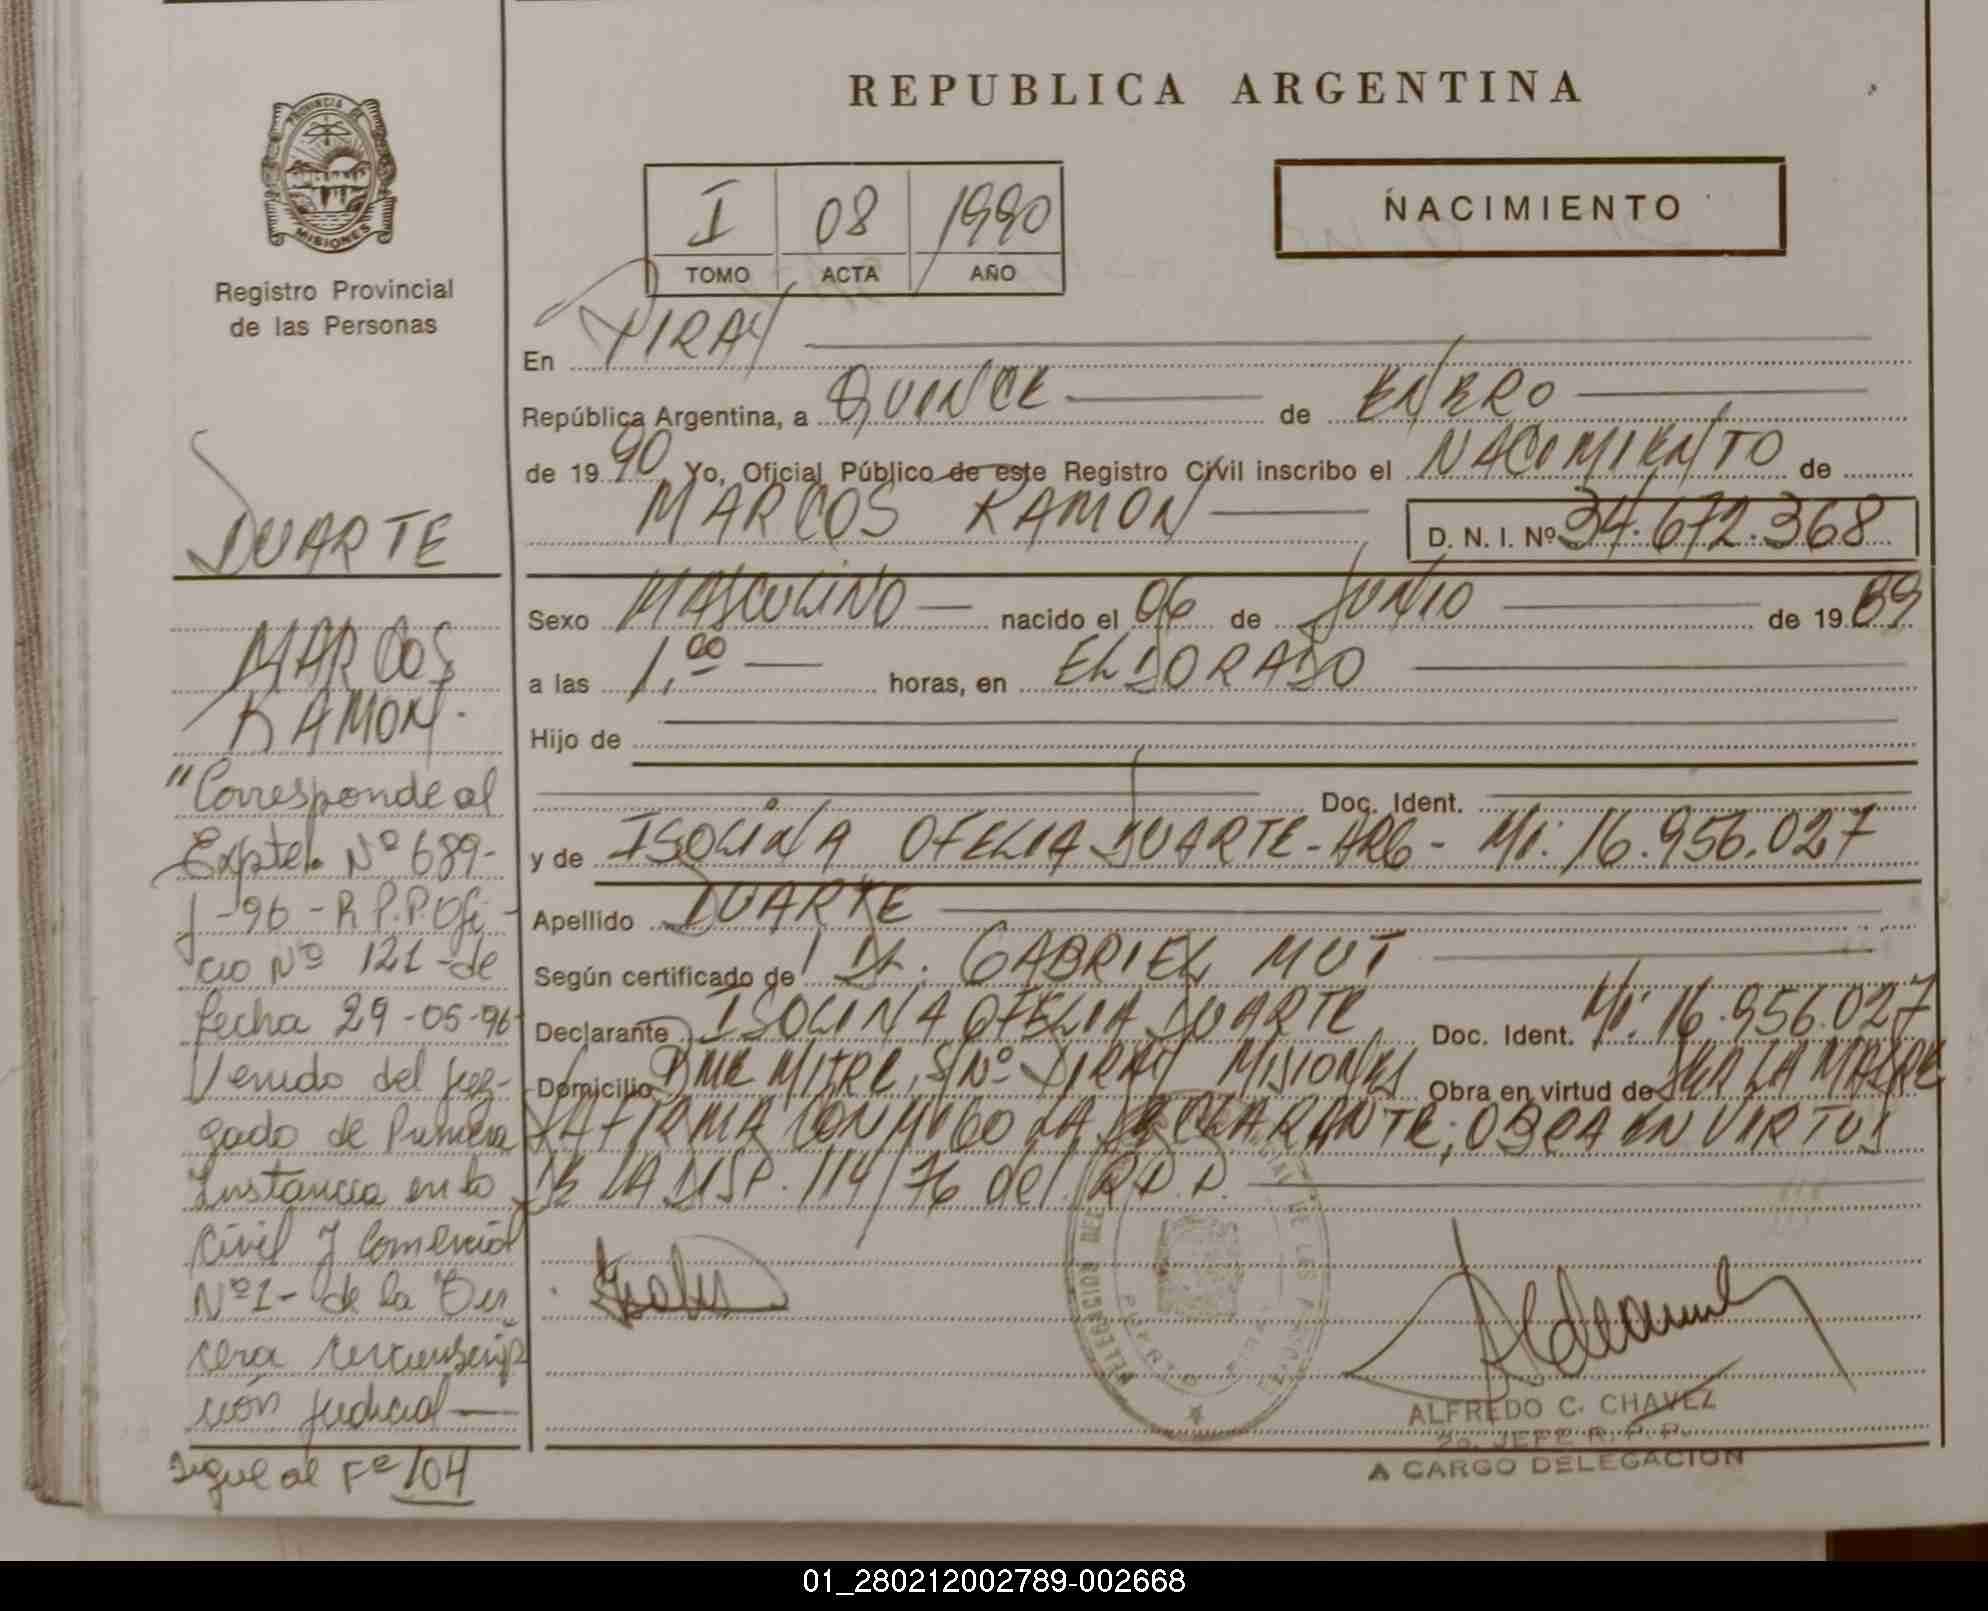 REPUBLICA ARGENTINA
PROVINCIA DE
MISIONES
Registro Provincial
de las Personas
I 08 1990
TOMO ACTA AÑO
NACIMIENTO
En PIRAY
República Argentina, a QUINCE de ENERO
de 1990 Yo, Oficial Público de este Registro Civil inscribo el NACIMIENTO de
MARCOS RAMON D. N. I. Nº 34.672.368
Sexo MASCULINO nacido el 06 de JUNIO de 1989
a las 1,00 horas, en ELDORADO
Hijo de
Doc. Ident.
y de ISOLINA OFELIA DUARTE - ARG - MI: 16.956.027
Apellido DUARTE
Según certificado de DR. GABRIEL MUT
Declarante ISOLINA OFELIA DUARTE Doc. Ident. MI: 16.956.027
Domicilio BME MITRE, S/Nº PIRAY MISIONES Obra en virtud de SER LA MADRE
LA FIRMA CONMIGO LA DECLARANTE; OBRA EN VIRTUD
DE LA DISP. 114/76 del R.P.P.
DUARTE
MARCOS
RAMON.
"Corresponde al
Expte. Nº 689-
J-96-R.P.P. Ofi-
cio Nº 121-de
fecha 29-05-96
Venido del Juz-
gado de Primera
Instancia en lo
Civil y Comercial
Nº1- de la Ter
cera Circunscrip
ción Judicial
Sigue al Fº 104
DELEGACION DEL
DE LAS PERSONAS
PUERTO PIRAY
ALFREDO C. CHAVEZ
2o. JEFE R. P. P.
A CARGO DELEGACION
01_280212002789-002668